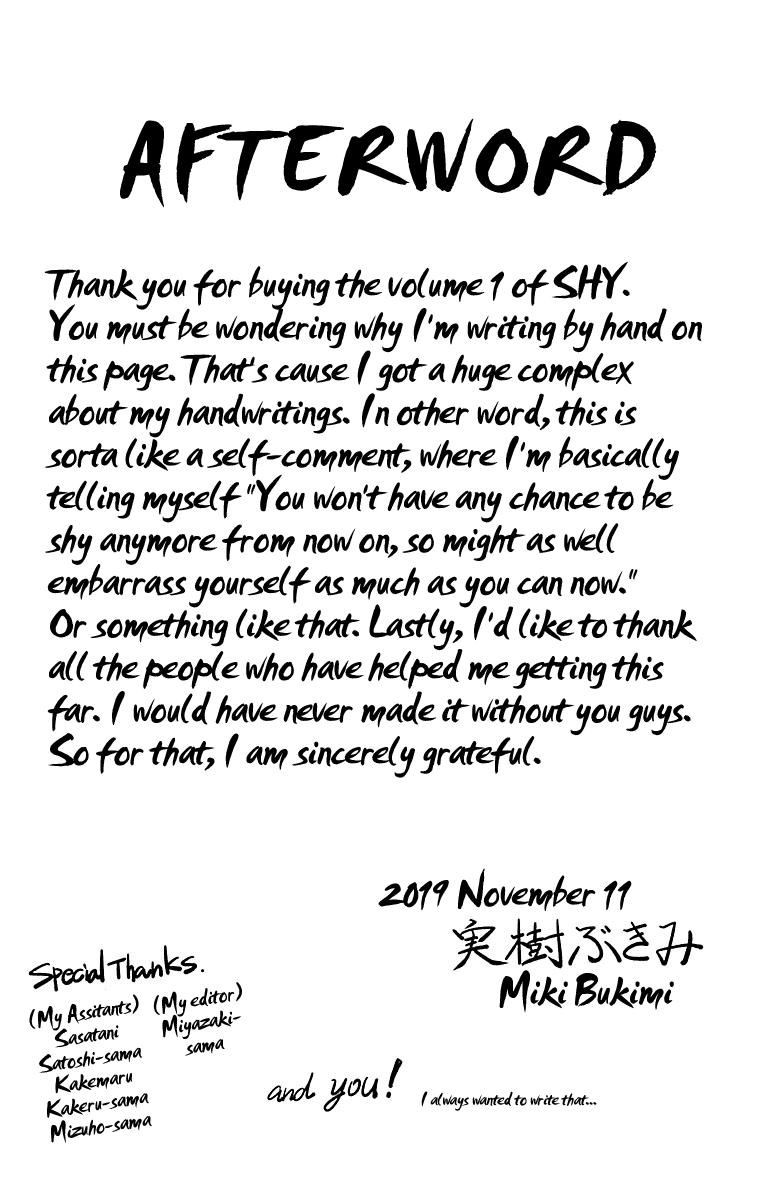 AFTERWORD
Thank you for buying the volume 1 of SHY.
You must be wondering why I'm writing by hand on
this page. That's cause I got a huge complex
about my handwritings. In other word, this is
sorta like a self-comment, where I'm basically
telling myself "You won't have any chance to be
shy anymore from now on, so might as well
embarrass yourself as much as you can now."
Or something like that. Lastly, I'd like to thank
all the people who have helped me getting this
far. I would have never made it without you guys.
So for that, I am sincerely grateful.
2019 November 11
実樹ぶきみ
Miki Bukimi
Special Thanks.
(My Assitants)
Sasatani
Satoshi-sama
Kakemaru
Kakeru-sama
Mizuho-sama
(My editor)
Miyazaki-
sama
and you!
I always wanted to write that...